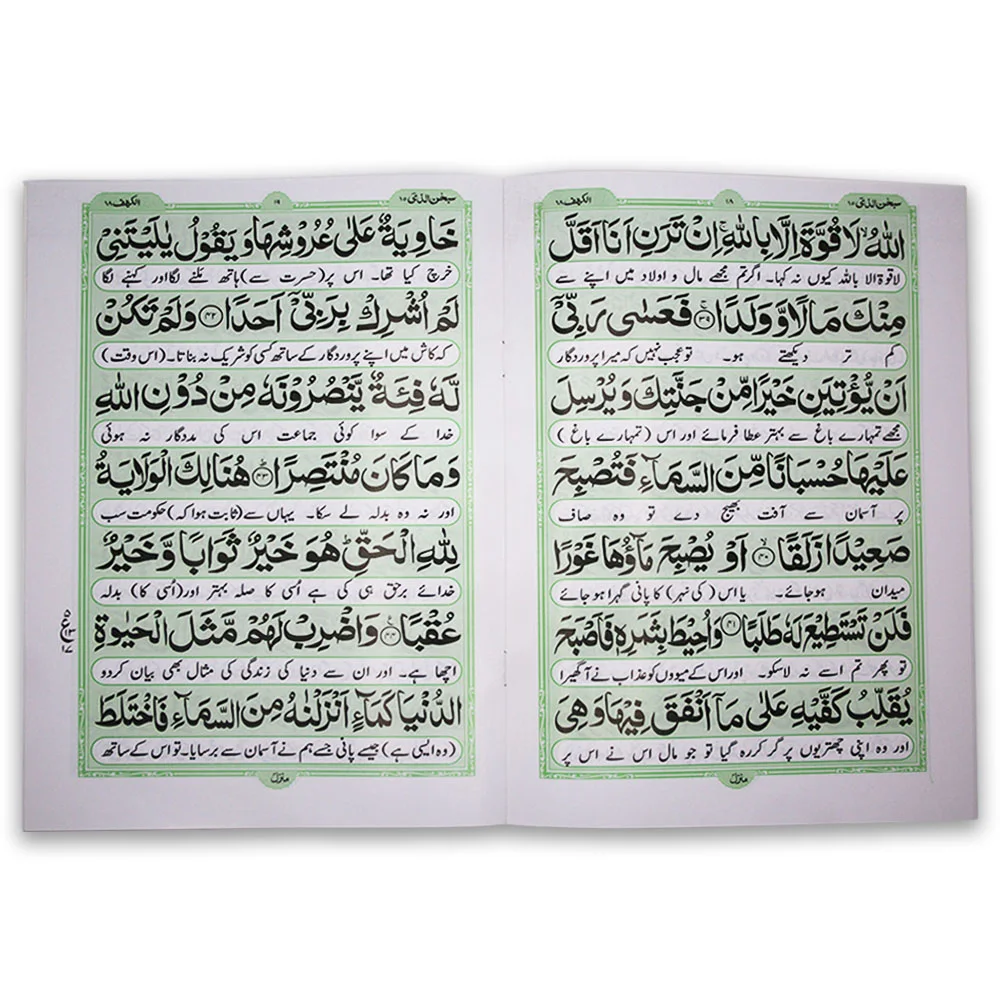 سبحن الذی ۱۵ ۱۹ الکهف ۱۸
اللّٰهُ لَا قُوَّةَ اِلَّا بِاللّٰهِ ۚ اِنْ تَرَنِ اَنَا اَقَلَّ
لاقوۃ الا باللہ کیوں نہ کہا۔ اگر تم مجھے مال و اولاد میں اپنے سے
مِنْكَ مَالًا وَّوَلَدًا ۚ﴿۳۹﴾ فَعَسٰى رَبِّیْۤ
کم تر دیکھتے ہو۔ تو عجب نہیں کہ میرا پروردگار
اَنْ یُّؤْتِیَنِ خَیْرًا مِّنْ جَنَّتِكَ وَیُرْسِلَ
مجھے تمہارے باغ سے بہتر عطا فرمائے اور اس (تمہارے باغ)
عَلَیْهَا حُسْبَانًا مِّنَ السَّمَآءِ فَتُصْبِحَ
پر آسمان سے آفت بھیج دے تو وہ صاف
صَعِیْدًا زَلَقًا ۙ﴿۴۰﴾ اَوْ یُصْبِحَ مَآؤُهَا غَوْرًا
میدان ہو جائے۔ یا اس (کی نہر) کا پانی گہرا ہو جائے
فَلَنْ تَسْتَطِیْعَ لَهٗ طَلَبًا ﴿۴۱﴾ وَاُحِیْطَ بِثَمَرِهٖ فَاَصْبَحَ
تو پھر تم اسے نہ لا سکو۔ اور اس کے میووں کو عذاب نے آ گھیرا
یُقَلِّبُ كَفَّیْهِ عَلٰى مَاۤ اَنْفَقَ فِیْهَا وَهِیَ
اور وہ اپنی چھتریوں پر گر کر رہ گیا تو جو مال اس نے اس پر
منزل
سبحن الذی ۱۵ ۱۹ الکهف ۱۸
خَاوِیَةٌ عَلٰى عُرُوْشِهَا وَیَقُوْلُ یٰلَیْتَنِیْ
خرچ کیا تھا۔ اس پر (حسرت سے) ہاتھ ملنے لگا اور کہنے لگا
لَمْ اُشْرِكْ بِرَبِّیْۤ اَحَدًا ﴿۴۲﴾ وَلَمْ تَكُنْ
کہ کاش میں اپنے پروردگار کے ساتھ کسی کو شریک نہ بناتا۔ (اس وقت)
لَّهٗ فِئَةٌ یَّنْصُرُوْنَهٗ مِنْ دُوْنِ اللّٰهِ
خدا کے سوا کوئی جماعت اس کی مددگار نہ ہوئی
وَمَا كَانَ مُنْتَصِرًا ؕ﴿۴۳﴾ هُنَالِكَ الْوَلَایَةُ
اور نہ وہ بدلہ لے سکا۔ یہاں سے (ثابت ہوا کہ) حکومت سب
لِلّٰهِ الْحَقِّ ؕ هُوَ خَیْرٌ ثَوَابًا وَّخَیْرٌ
خدائے برحق ہی کی ہے اُسی کا صلہ بہتر اور (اُسی کا) بدلہ
عُقْبًا ﴿۴۴﴾ وَاضْرِبْ لَهُمْ مَّثَلَ الْحَیٰوةِ
اچھا ہے۔ اور ان سے دنیا کی زندگی کی مثال بھی بیان کر دو
الدُّنْیَا كَمَآءٍ اَنْزَلْنٰهُ مِنَ السَّمَآءِ فَاخْتَلَطَ
(وہ ایسی ہے) جیسے پانی جسے ہم نے آسمان سے برسایا۔ تو اس کے ساتھ
منزل